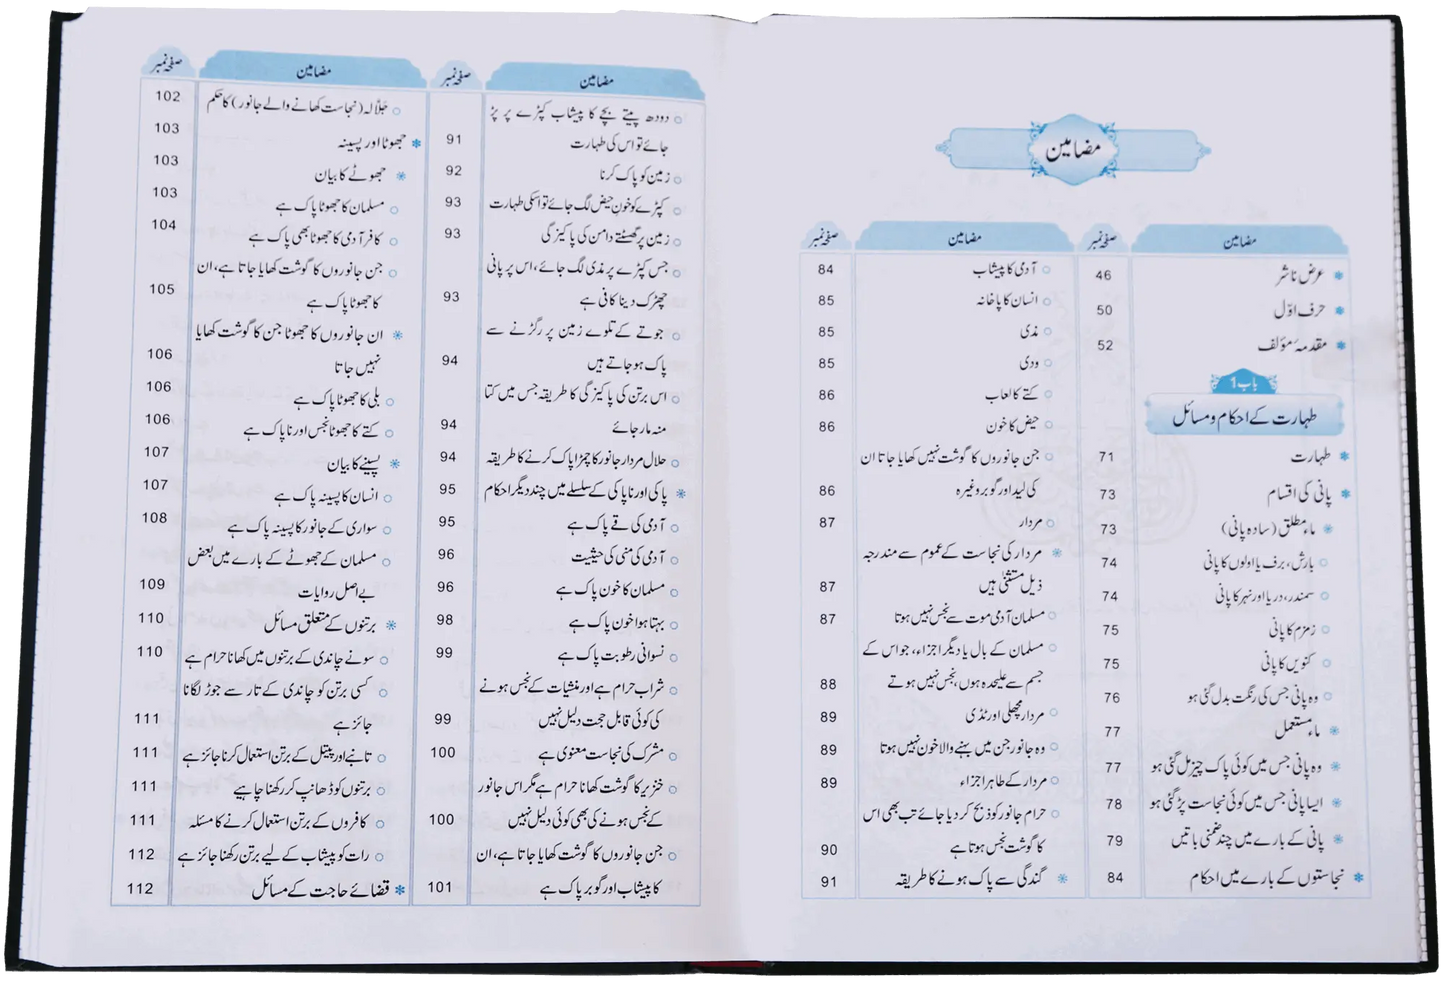 مضامین
مضامین صفحہ نمبر
عرض ناشر 46
حرف اوّل 50
مقدمہ مؤلف 52
باب 1
طہارت کے احکام و مسائل
طہارت 71
پانی کی اقسام 73
ماء مطلق (سادہ پانی) 73
بارش، برف یا اولوں کا پانی 74
سمندر، دریا اور نہر کا پانی 74
زمزم کا پانی 75
کنویں کا پانی 75
وہ پانی جس کی رنگت بدل گئی ہو 76
ماء مستعمل 77
وہ پانی جس میں کوئی پاک چیز مل گئی ہو 77
ایسا پانی جس میں کوئی نجاست پڑ گئی ہو 78
پانی کے بارے میں چند ضمنی باتیں 79
نجاستوں کے بارے میں احکام 84
مضامین صفحہ نمبر
آدمی کا پیشاب 84
انسان کا پاخانہ 85
مذی 85
ودی 85
کتے کا لعاب 86
حیض کا خون 86
جن جانوروں کا گوشت نہیں کھایا جاتا ان
کی لید اور گوبر وغیرہ 86
مردار 87
مردار کی نجاست کے عموم سے مندرجہ
ذیل مستثنیٰ ہیں 87
مسلمان آدمی موت سے نجس نہیں ہوتا 87
مسلمان کے بال یا دیگر اجزاء، جو اس کے
جسم سے علیحدہ ہوں، نجس نہیں ہوتے 88
مردار مچھلی اور ٹڈی 89
وہ جانور جن میں بہنے والا خون نہیں ہوتا 89
مردار کے طاہر اجزاء 89
حرام جانور کو ذبح کر دیا جائے تب بھی اس
کا گوشت نجس ہوتا ہے 90
گندگی سے پاک ہونے کا طریقہ 91
مضامین صفحہ نمبر
دودھ پیتے بچے کا پیشاب کپڑے پر پڑ
جائے تو اس کی طہارت 91
زمین کو پاک کرنا 92
کپڑے کو خون حیض لگ جائے تو اسکی طہارت 93
زمین پر گھسٹتے دامن کی پاکیزگی 93
جس کپڑے پر مذی لگ جائے، اس پر پانی
چھڑک دینا کافی ہے 93
جوتے کے تلوے زمین پر رگڑنے سے
پاک ہو جاتے ہیں 94
اس برتن کی پاکیزگی کا طریقہ جس میں کتا
منہ مار جائے 94
حلال مردار جانور کا چمڑا پاک کرنے کا طریقہ 94
پاکی اور ناپاکی کے سلسلے میں چند دیگر احکام 95
آدمی کی قے پاک ہے 95
آدمی کی منی کی حیثیت 96
مسلمان کا خون پاک ہے 96
بہتا ہوا خون پاک ہے 98
نسوانی رطوبت پاک ہے 99
شراب حرام ہے اور منشیات کے نجس ہونے
کی کوئی قابل حجت دلیل نہیں 99
مشرک کی نجاست معنوی ہے 100
خنزیر کا گوشت کھانا حرام ہے مگر اس جانور
کے نجس ہونے کی بھی کوئی دلیل نہیں 100
جن جانوروں کا گوشت کھایا جاتا ہے، ان
کا پیشاب اور گوبر پاک ہے 101
مضامین صفحہ نمبر
جلّالہ (نجاست کھانے والے جانور) کا حکم 102
جھوٹا اور پسینہ 103
جھوٹے کا بیان 103
مسلمان کا جھوٹا پاک ہے 103
کافر آدمی کا جھوٹا بھی پاک ہے 104
جن جانوروں کا گوشت کھایا جاتا ہے، ان
کا جھوٹا پاک ہے 105
ان جانوروں کا جھوٹا جن کا گوشت کھایا
نہیں جاتا 106
بلی کا جھوٹا پاک ہے 106
کتے کا جھوٹا نجس اور ناپاک ہے 106
پسینے کا بیان 107
انسان کا پسینہ پاک ہے 107
سواری کے جانور کا پسینہ پاک ہے 108
مسلمان کے جھوٹے کے بارے میں بعض
بے اصل روایات 109
برتنوں کے متعلق مسائل 110
سونے چاندی کے برتنوں میں کھانا حرام ہے 110
کسی برتن کو چاندی کے تار سے جوڑ لگانا
جائز ہے 111
تانبے اور پیتل کے برتن استعمال کرنا جائز ہے 111
برتنوں کو ڈھانپ کر رکھنا چاہیے 111
کافروں کے برتن استعمال کرنے کا مسئلہ 111
رات کو پیشاب کے لیے برتن رکھنا جائز ہے 112
قضائے حاجت کے مسائل 112